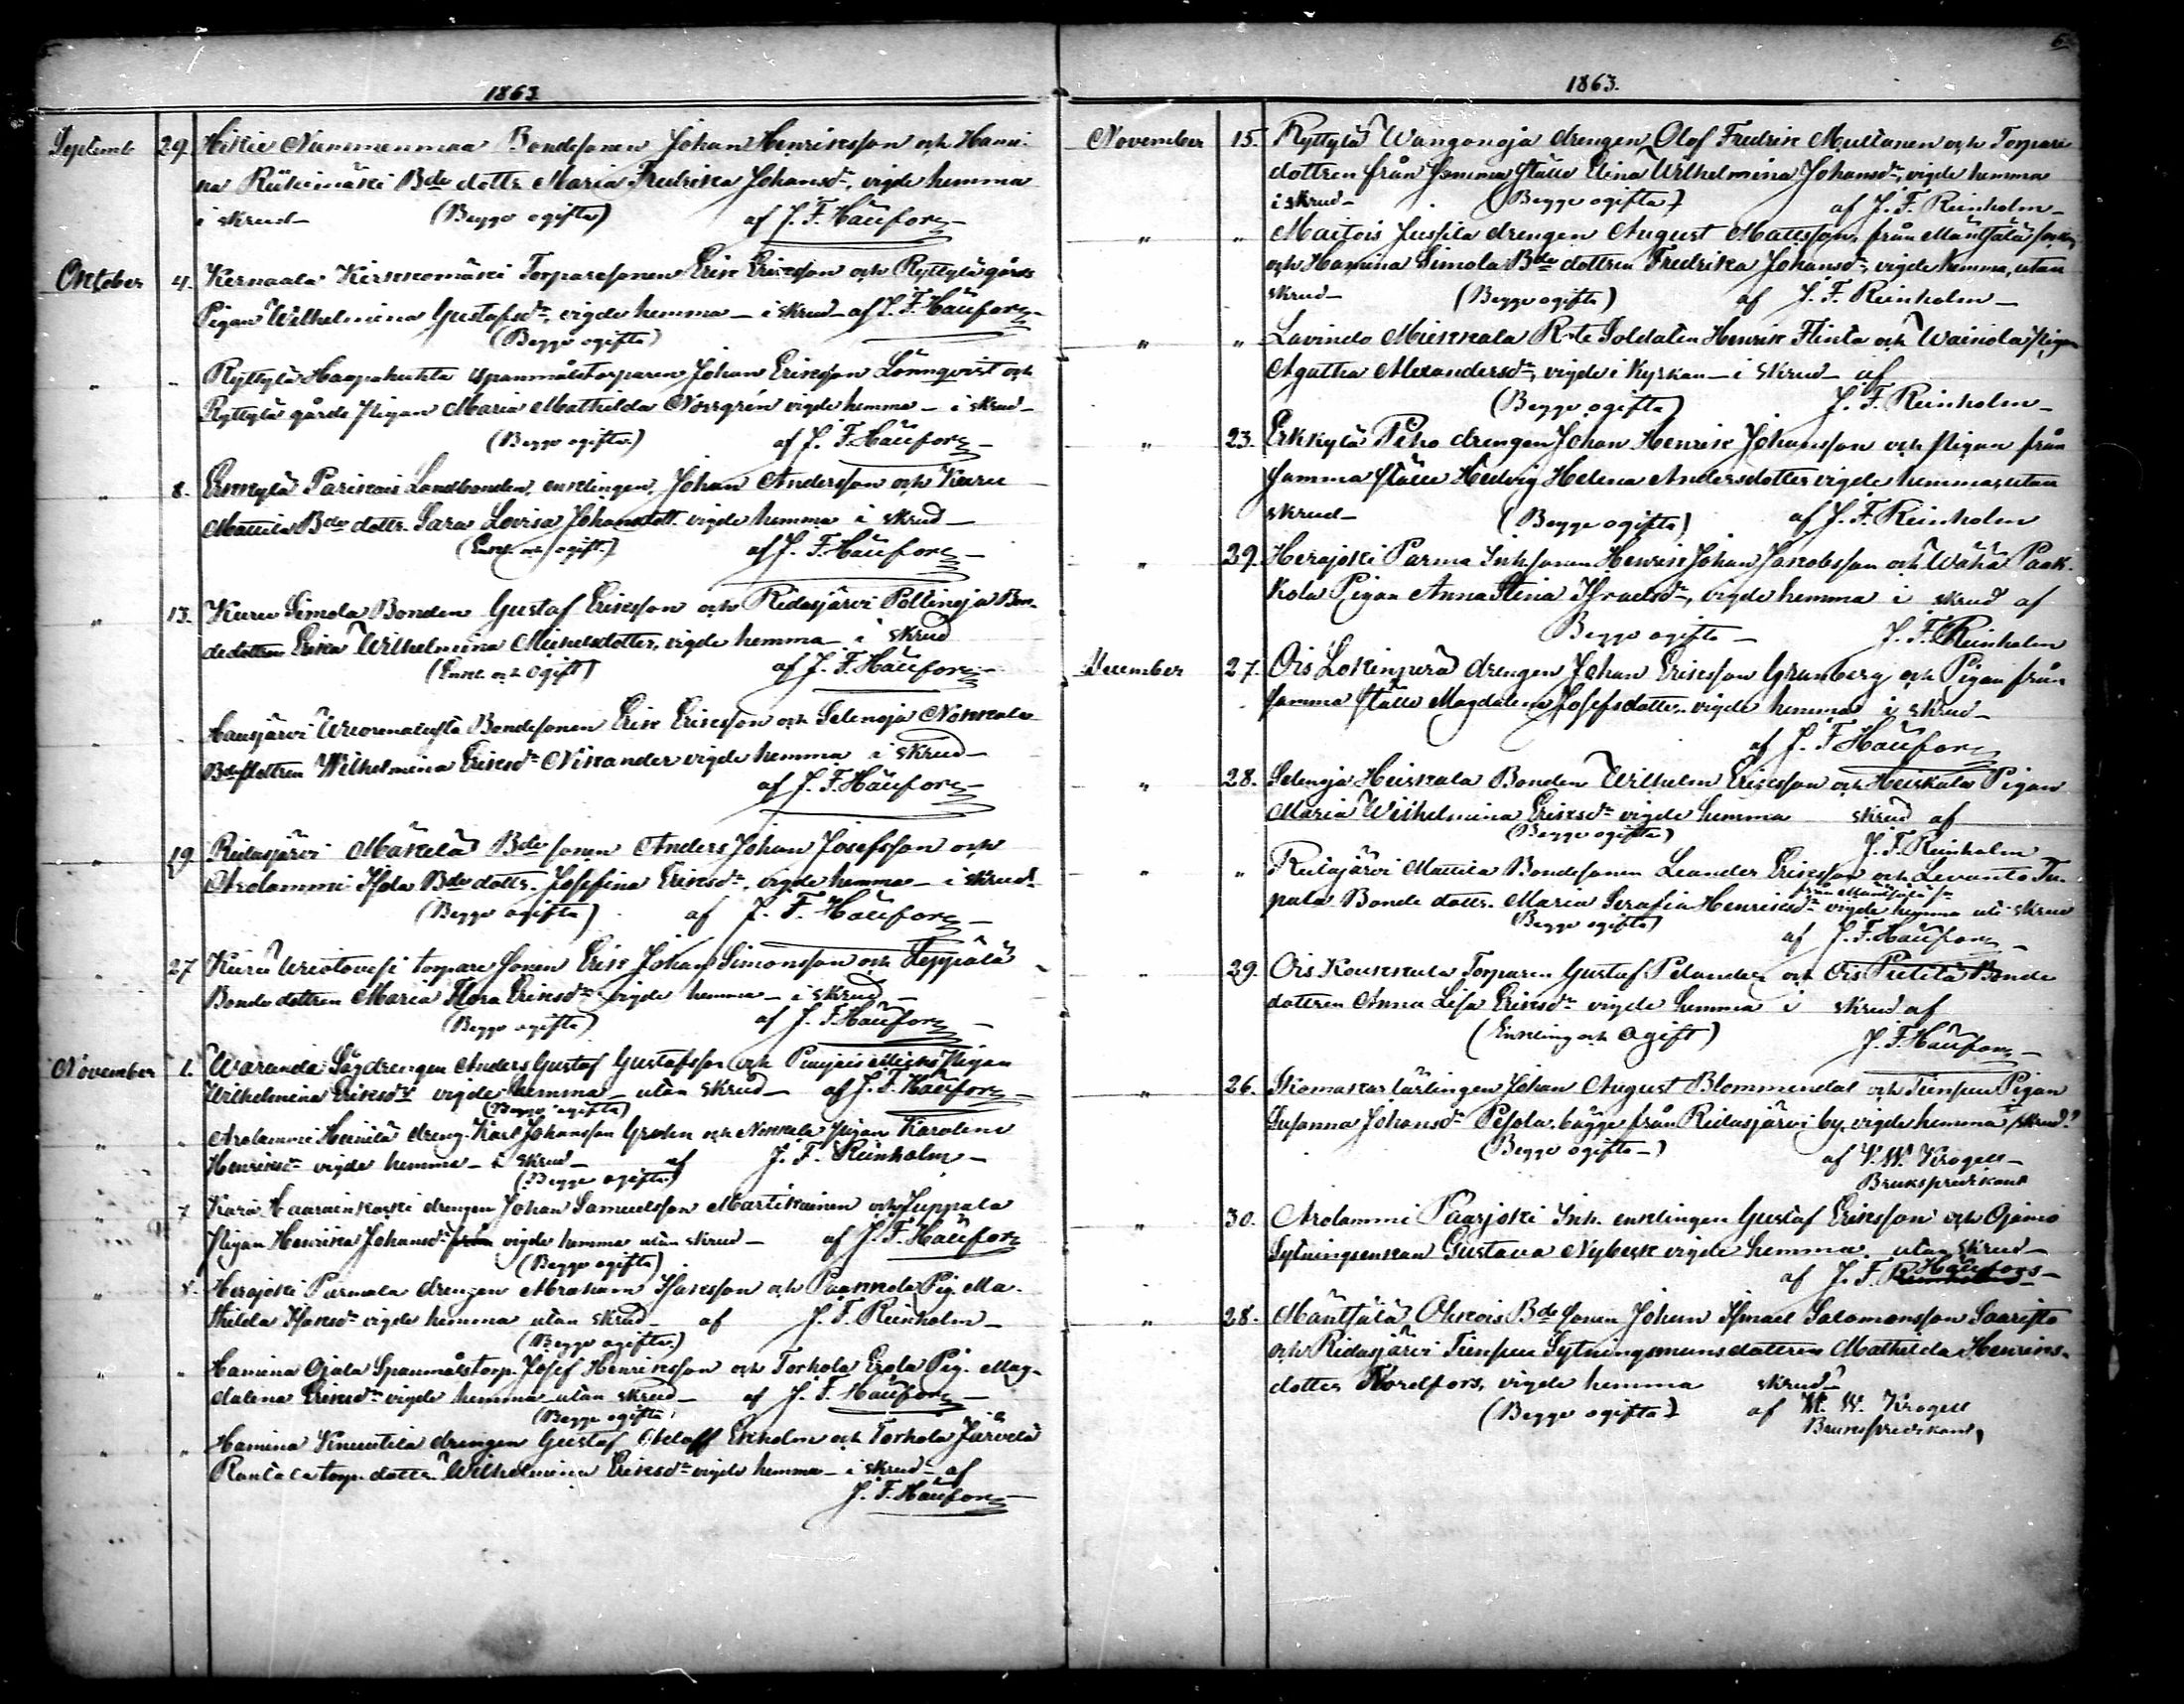 1863
Septemb 29. Hikie Nummenmaa Bondesonen Johan Henriksson och Hami-
na Riihimäki Bde dottr. Maria Fredrika Johansdr, vigde hemma
i skrud (Begge ogifta) af J. F. Häufors
Oktober 4. Kernaala Kirkkomäki Torparesonen Erik Eriksson och Ryttylä gårds
Pigan Wilhelmina Gustafsdr, vigde hemma i skrud af J. F. Häufors
(Begge ogifta)
" " Ryttylä Haapahuhta Spanmålstorparen Johan Eriksson Lönnqvist och
Ryttylä gårds pigan Maria Mathilda Norrgrén vigde hemma i skrud
(Begge ogifta) af J. F. Häufors
" 8. Erkkylä Parikais Landbonden, enklingen, Johan Andersson och Karu
Mattila Bde dottr. Sara Lovisa Johansdott. vigde hemma i skrud
(Enkl. och ogift.) af J. F. Häufors
" 13. Kuru Simola Bonden Gustaf Eriksson och Ridasjärvi Pöllinoja Bon-
dedottren Erika Wilhelmina Michelsdotter, vigde hemma i skrud
(Enkl. och ogift) af J. F. Häufors
" " Hausjärvi Bondesonen Erik Eriksson och Selenoja Nokkala
Bdedottren Wilhelmina Eriksdr Nikander vigde hemma i skrud
af J. F. Häufors
" 19. Ridasjärvi Mäkelä Bde sonen Anders Johan Josefsson och
Arolammi Isola Bde dottr. Josefina Eriksdr, vigde hemma i skrud
(Begge ogifta) af J. F. Häufors
" 27 Kuru torpare sonen Erik Johan Simonsson och Seppälä
Bonde dottren Maria Flora Eriksdr vigde hemma i skrud
(Begge ogifta) af J. F. Häufors
November 1. Waranda Sågdrengen Anders Gustaf Gustafsson och pigan
Wilhelmina Eriksdr vigde hemma utan skrud af J. F. Häufors
(Begge ogifta)
" " Arolammi Heinilä dreng. Karl Johansson Grolin och Nokkala pigan Karolina
Henriksdr vigde hemma i skrud af J. F. Reinholm
(Begge ogifta)
" 7 Kara Haarainkoski drengen Johan Samuelsson Martikainen och Juppala
Pigan Henrika Johansdr från vigde hemma utan skrud af J. F. Häufors
(Begge ogifta)
" 8. Herajoki Parmala drengen Abraham Isaksson och Paakkola Pig. Ma-
thilda Isaksdr vigde hemma utan skrud af J. F. Reinholm
(Begge ogifta)
" " Hamina Ojala Spanmålstorp. Josef Henriksson och Torhola Erola Pig. Mag-
dalena Eriksdr vigde hemma utan skrud af J. F. Häufors
(Begge ogifta)
" " Hamina Knuutila drengen Gustaf Adolff Ekholm och Torhola Järvelä
Rantala torp. dottr. Wilhelmina Eriksdr vigde hemma i skrud af
J. F. Häufors
1863.
November 15. Ryttylä Wanganoja drengen Olof Fredrik Multanen och Torpare
dottren från samma ställe Elina Wilhelmina Johansdr, vigde hemma
i skrud (Begge ogifta) af J. F. Reinholm
" " Maitois Jussila drengen August Mattsson, från Mäntsälä socken,
och Hamina Simola Bde dottren Fredrika Johansdr, vigde hemma, utan
skrud (Begge ogifta) af J. F. Reinholm
" " Lavinto Mickkala Rote Soldaten Henrik Flinta och Wainiola pigan
Agatha Alexandersdr, vigde i Kyrkan i skrud af
(Begge ogifta) J. F. Reinholm
" 23. Erkkylä Piho drengen Johan Henrik Johansson och pigan från
samma ställe Hedvig Helena Andersdotter vigde hemma, utan
skrud (Begge ogifta) af J. F. Reinholm
" 29. Herajoki Parma Inh. sonen Henrik Johan Jakobsson och Wähä Paak-
kola Pigan Anna Stina Israelsdr, vigde hemma i skrud af
Begge ogifta J. F. Reinholm
December 27. Ois Lokinperä drengen Johan Eriksson Grunberg och Pigan från
samma ställe Magdalena Josefsdotter. vigde hemma i skrud
af J. F. Häufors
" 28. Selenoja Heiskala Bonden Wilhelm Eriksson och Heiskala Pigan
Maria Wilhelmina Eriksdr vigde hemma skrud af
(Begge ogifta) J. F. Reinholm
" " Ridasjärvi Mattila Bondesonen Leander Eriksson och Levanto Tu-
från Mäntsälä sn
pala Bonde dottr. Maria Serafia Henriksdr vigde hemma uti skrud
Begge ogifta) af J. F. Häufors
" 29. Ois Koukkula Torparen Gustaf Pelander och Ois Pietilä Bonde
dottren Anna Lisa Eriksdr vigde hemma i skrud af
(Enkling och Ogift) J. F. Häufors
" 26. Skomakar lärlingen Johan August Blommendal och Tiensuu Pigan
Susanna Johansdr Pesola, bägge från Ridasjärvi by, vigde hemma, skrud?
(Begge ogifta) af V. W. Krogell
Brukspredikant
" 30. Arolammi Paarjoki Inh. enklingen Gustaf Eriksson och Ojamo
Sytningsenkan Gustava Nybäck vigde hemma, utan skrud
af J. F. Häufors
" 28. Mäntsälä Ohkois Bde sonen Johan Ismael Salomonsson Saaristo
och Ridasjärvi Tiensuu Sytningsmans dottren Mathilda Henriks-
dotter Nordfors, vigde hemma skrud
(Begge ogifta) af V. W. Krogell
Brukspredikant,